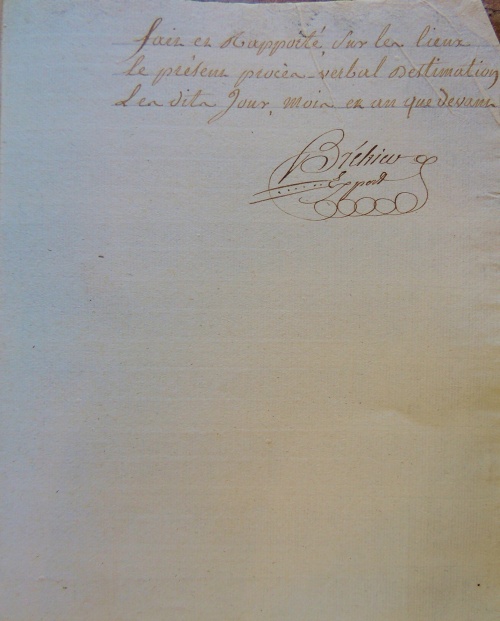 fait et Rapporté, Sur les lieux
le présent procès verbal destimation
Les dits Jour, mois et an que devant
Bréhier
Expert